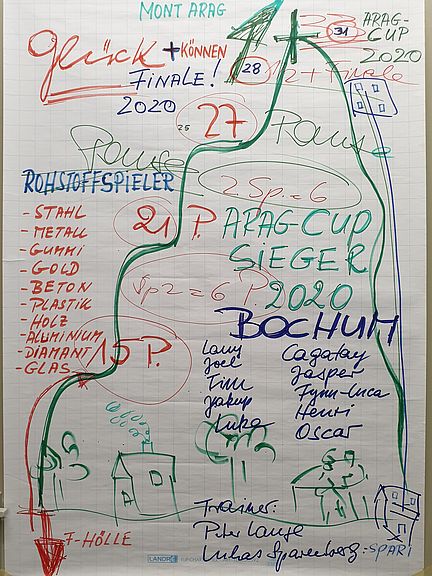 MONT ARAG
ARAG-
CUP
2020
31
Glück + KÖNNEN
FINALE!
2020
28
2 + Finale
25
27
Pause
Pause
ROHSTOFFSPIELER
2 Sp. = 6
- STAHL
- METALL
- GUMMI
- GOLD
- BETON
- PLASTIK
- HOLZ
- ALUMINIUM
- DIAMANT
- GLAS
21 P.
ARAG-CUP
SIEGER
2020
Sp 2 = 6 P.
BOCHUM
15 P.
Lauri
Joel
Tim
Jakup
Luka
Cagatay
Jasper
Fynn-Luca
Henri
Oscar
Trainer:
Peter Lange
Lukas Sparenberg
- SPARI
F-HÖLLE
LANDRÉ